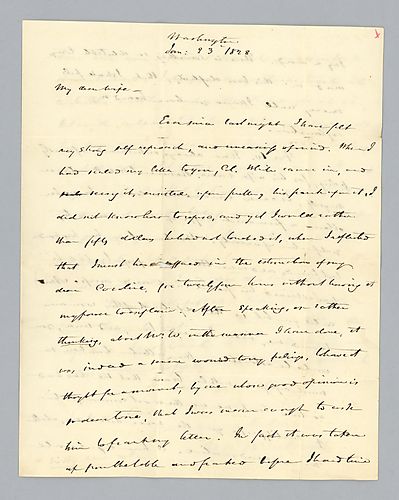 Washington
Jan: 23 1828
My dear wife—
Ever since last night I have felt
very strong self reproach, and uneasiness of mind. When I
had sealed my letter to you, Col. White came in, and
seeing it, insisted, upon putting his frank upon it, I
did not know how to refuse, and yet I would rather
than fifty dollars he had not touched it, when I reflected
that I must have in the estimation of my
dear Caroline, for twenty four hours without having it
my power to explain. After speaking, or rather
thinking, about Mr. W. in the manner I have done, it
was indeed a severe wound to my feelings, to have it
thought for a moment, by one whose good opinion is
so dear to me, that I was mean enough to ask
him to frank my letter. In fact it was taken
up from the table and franked before I had time